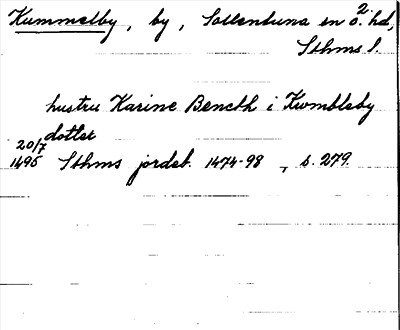 Kummelby, by, Sollentuna sn o. 2. hd,
Sthms l.
hustru Karine Bencth i Kwmbleby
dotter
20/7
1495 Sthms jordeb. 1474-98, s. 279.